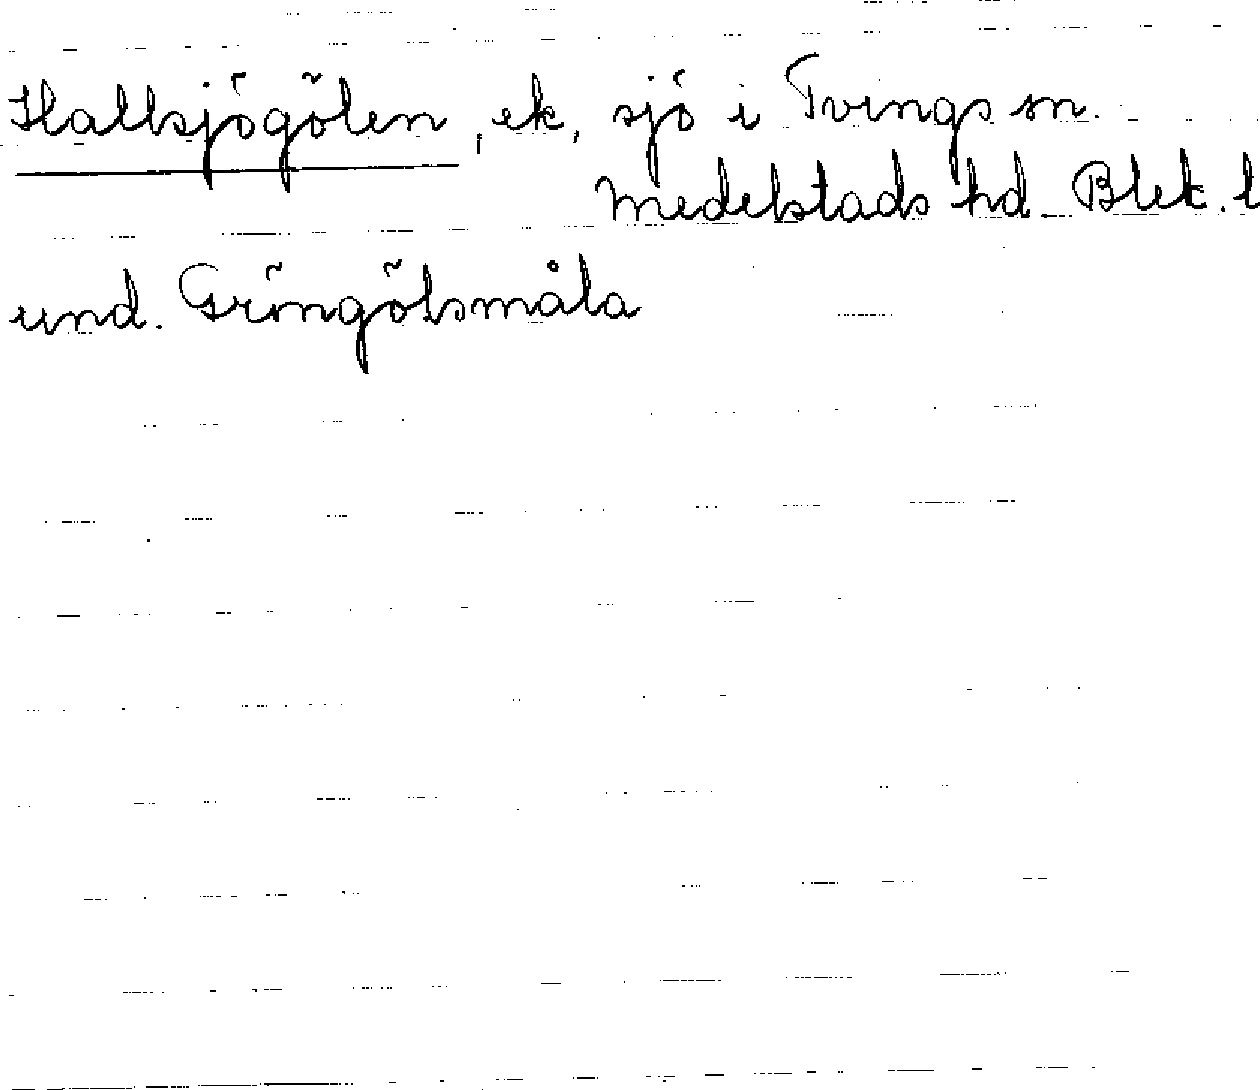 Hallsjögölen, ek, sjö i Tvings sn.
Medelstads hd Blek. l
und. Gröngölsmåla